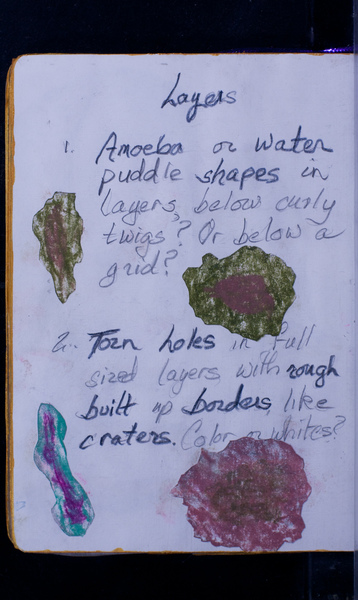 Layers
1. Amoeba or water
puddle shapes in
layers, below curly
twigs? Or below a
grid?
2. Torn holes in full
sized layers with rough
built up borders, like
craters. Color or whites?